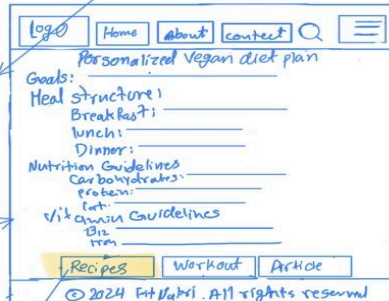 logo Home About contect
Personalized Vegan diet plan
Goals:
Meal structure:
Breakfast:
lunch:
Dinner:
Nutrition Guidelines
Carbohydrates:
protein:
Fat:
Vitamin Guidelines
B12
Iron
Recipes Workout Article
© 2024 . All rights reserved